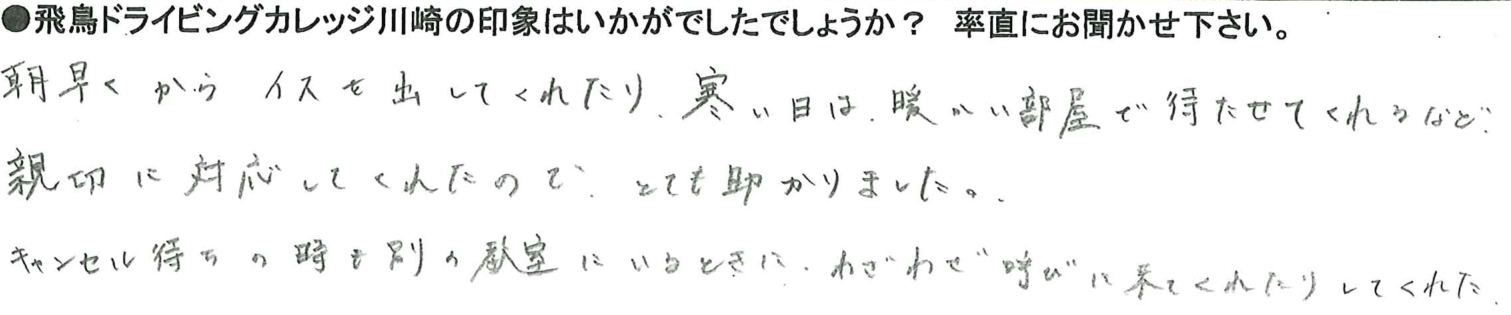 ●飛鳥ドライビングカレッジ川崎の印象はいかがでしたでしょうか？ 率直にお聞かせ下さい。
朝早くから イスを出してくれたり、寒い日は、暖かい部屋で待たせてくれるなど、
親切に対応してくれたので、とても助かりました。
キャンセル待ちの時も別の教室にいるときに、わざわざ呼びに来てくれたりしてくれた、